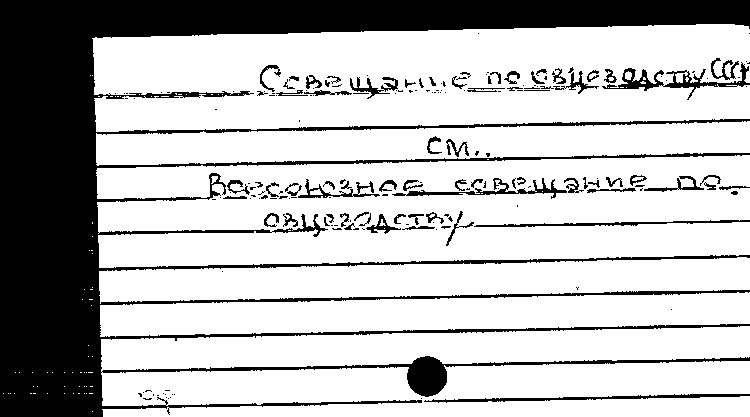 Совещание по овцеводству СССР
см..
Всесоюзное совещание по
овцеводству.